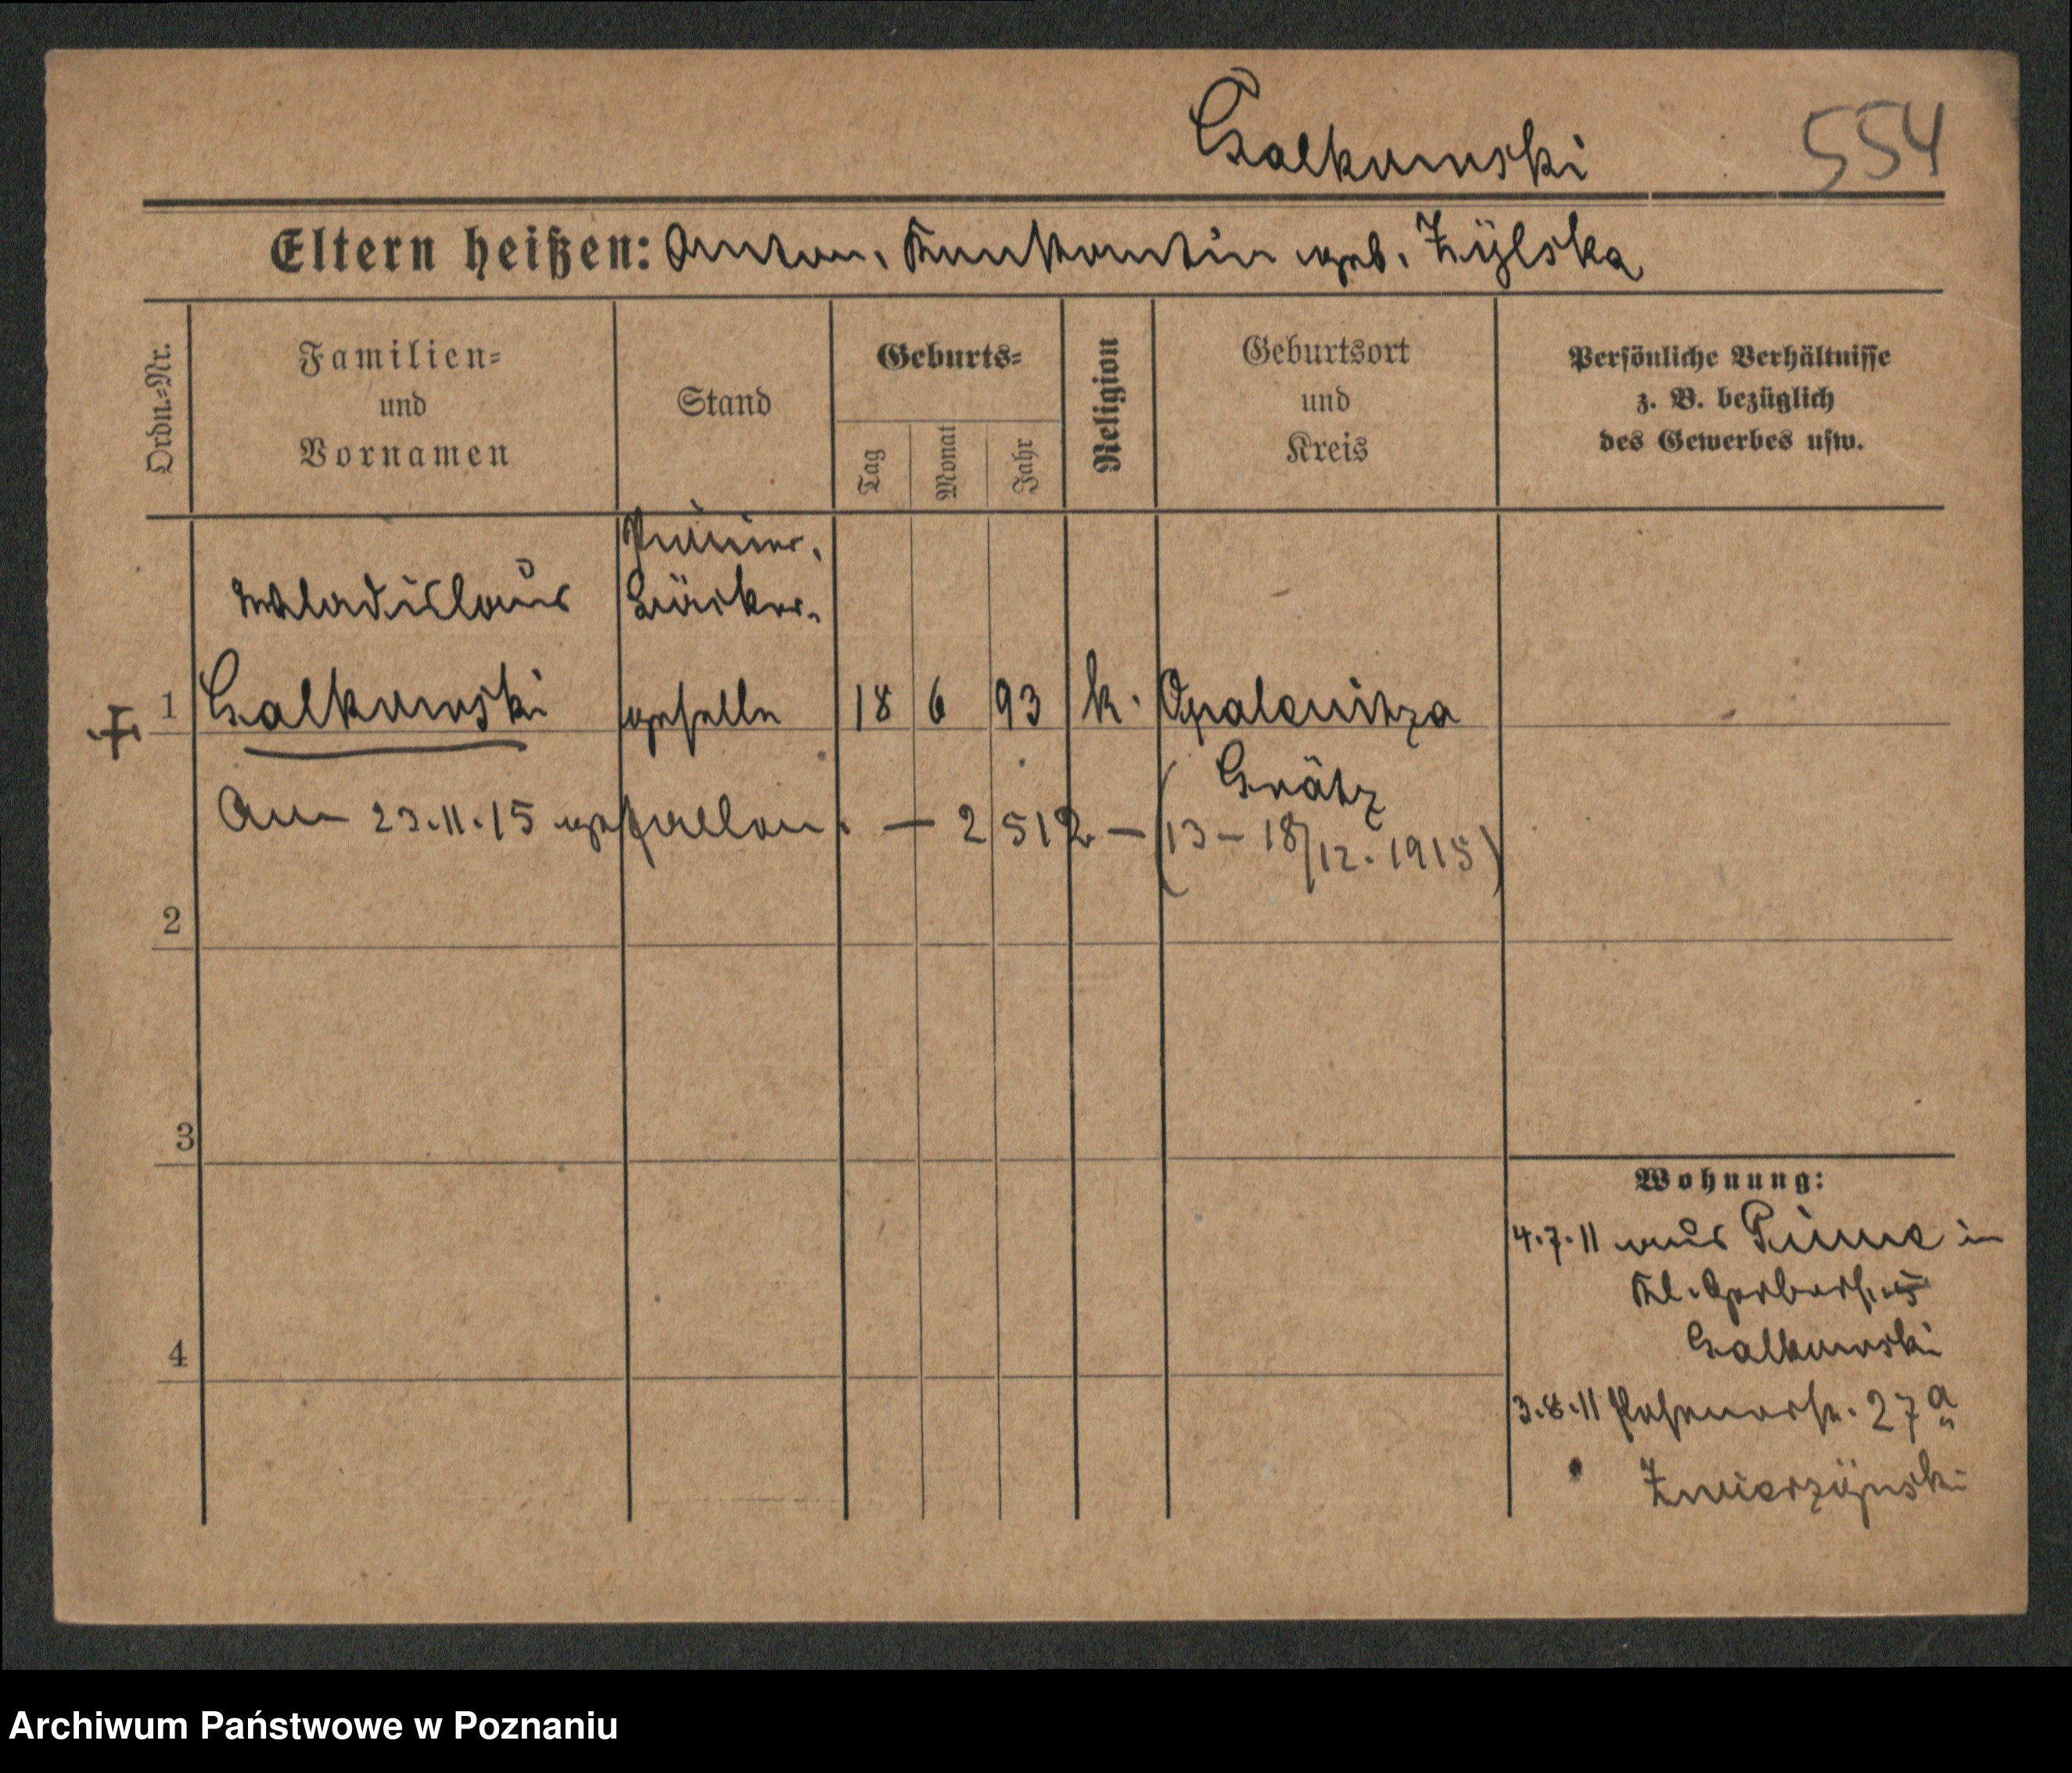 Galkowski 554
Eltern heißen: Anton, Konstantia geb. Zÿlska
Ordn.=Nr.
Familien=
und
Vornamen
Stand
Geburts=
Tag
Monat
Jahr
Religion
Geburtsort
und
Kreis
Persönliche Verhältnisse
z. B. bezüglich
des Gewerbes usw.
Wladislaus
bäcker-
1 Galkowski geselle 18 6 93 k. Opalenitza
Grätz
Am 23.11.15 gefallen. — 2512 — (13 – 18/12. 1915)
2
3
4
Wohnung:
4.7.11 aus Pinne in
Kl. Gerberstr. 5
Galkowski
3.8.11 Posenerstr. 27 a
Zwierzÿnski
Archiwum Państwowe w Poznaniu